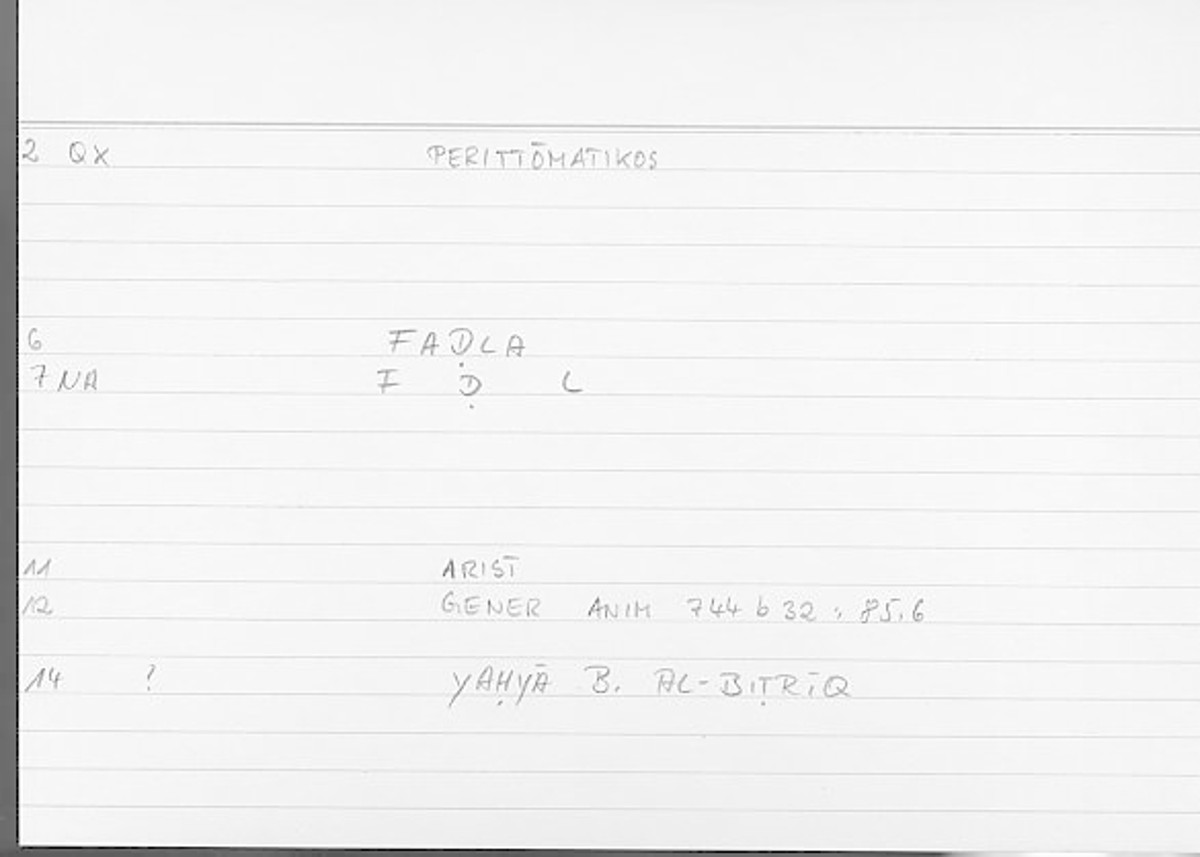 2 QX PERITTŌMATIKOS
6 FAḌLA
7 NA F Ḍ L
11 ARIST
12 GENER ANIM 744 b 32 ; 85.6
14 ? YAḤYĀ B. AL-BIṬRĪQ